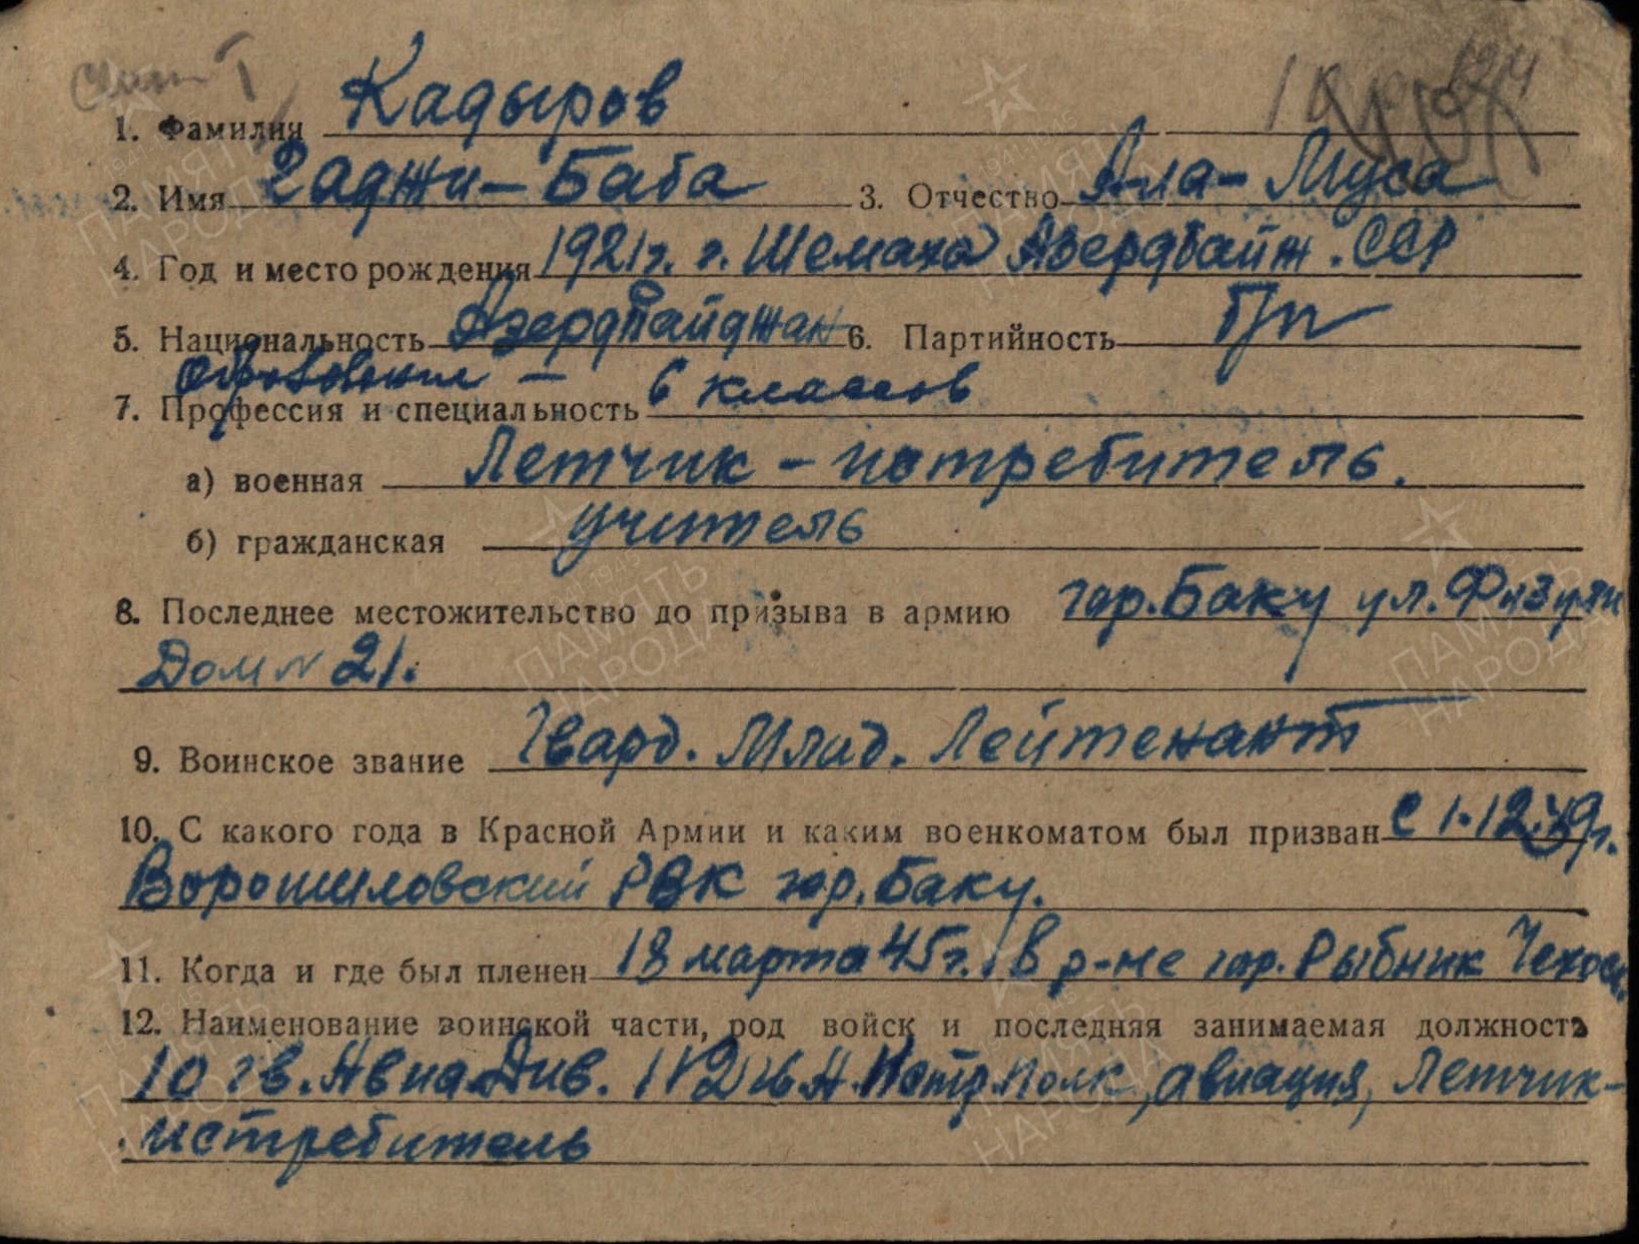 1. Фамилия Кадыров
2. Имя Гаджи-Баба 3. Отчество Ала-Муса
4. Год и место рождения 1921г. г. Шемаха Азердбайж. ССР
5. Национальность Азердбайджан 6. Партийность б/п
образование - 6 классов
7. Профессия и специальность
а) военная Летчик-истребитель.
б) гражданская учитель
8. Последнее местожительство до призыва в армию гор. Баку ул. Физули
Дом № 21.
9. Воинское звание Гвард. Млад. Лейтенант
10. С какого года в Красной Армии и каким военкоматом был призван с 1.12.39г.
Ворошиловский РВК гор. Баку.
11. Когда и где был пленен 18 марта 45г. в р-не гор. Рыбник Чехосл.
12. Наименование воинской части, род войск и последняя занимаемая должность
10 гв. Авиа Див. Истр. Полк, авиация, Летчик-
истребитель
ПАМЯТЬ НАРОДА
1941-1945